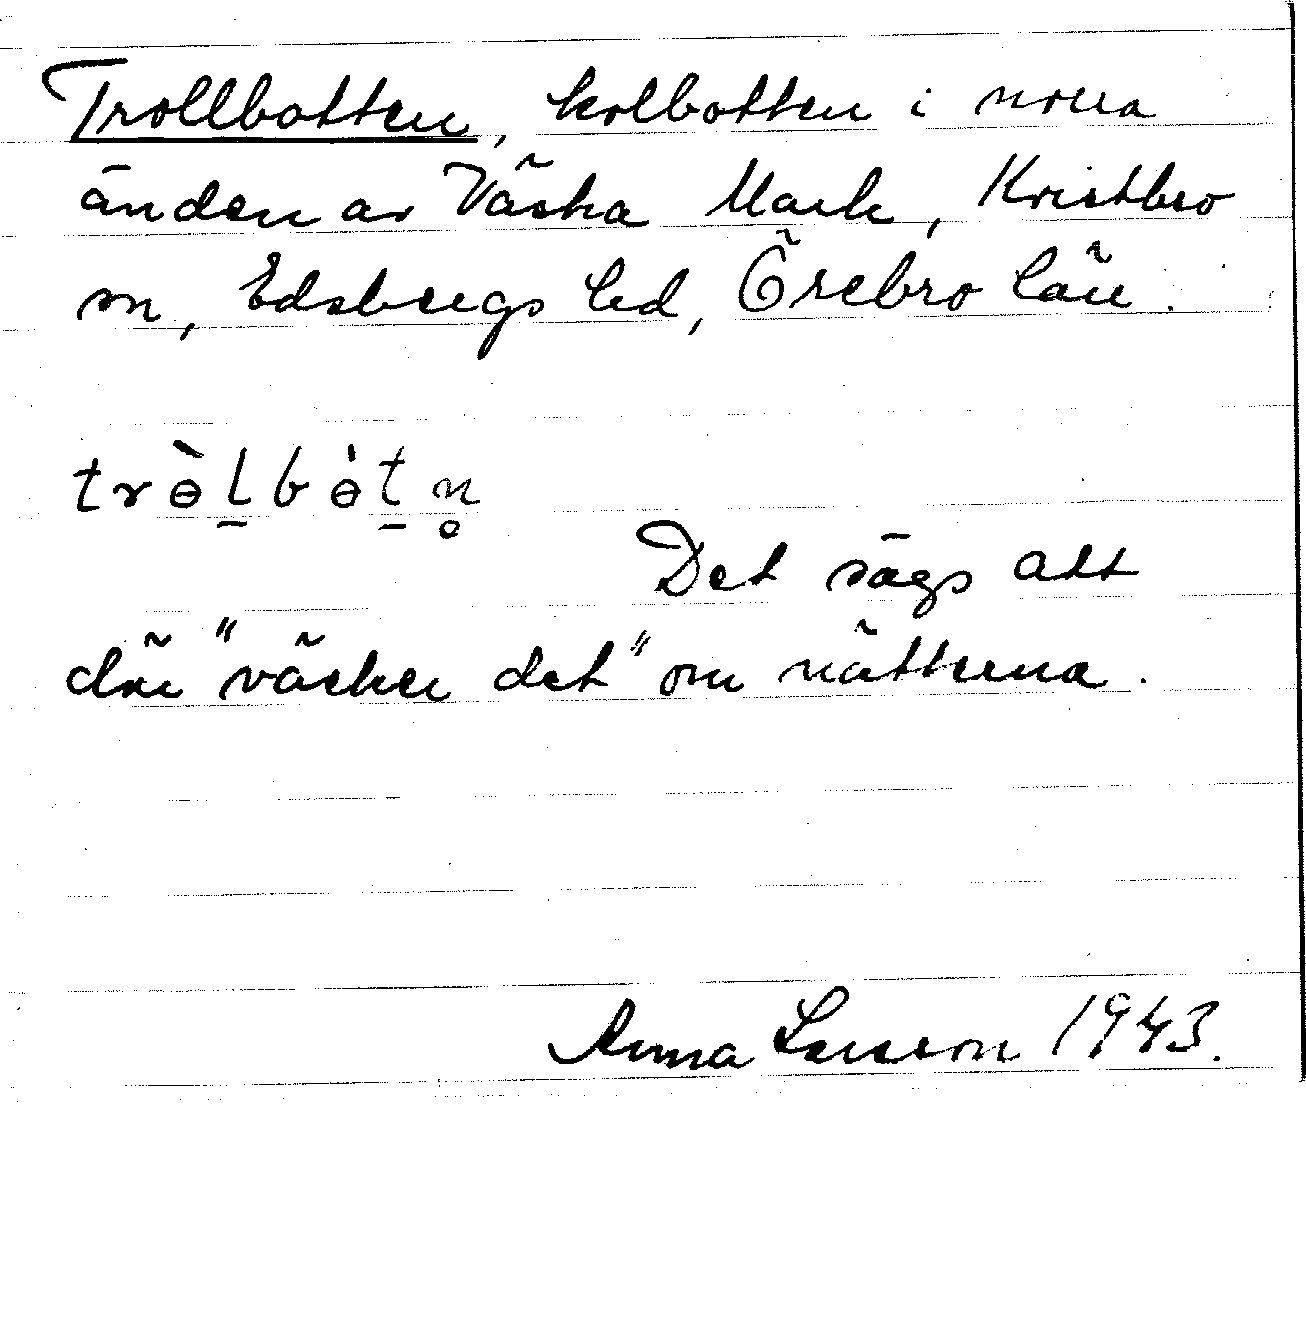 Trollbotten, kolbotten i norra
änden av Västra Mark, Kvistbro
sn, Edsbergs hd, Örebro län.
trɵ̀l̠bɵ̀t̠n̥
Det sägs att
där "väcker det" om nätterna.
Anna Larsson 1943.